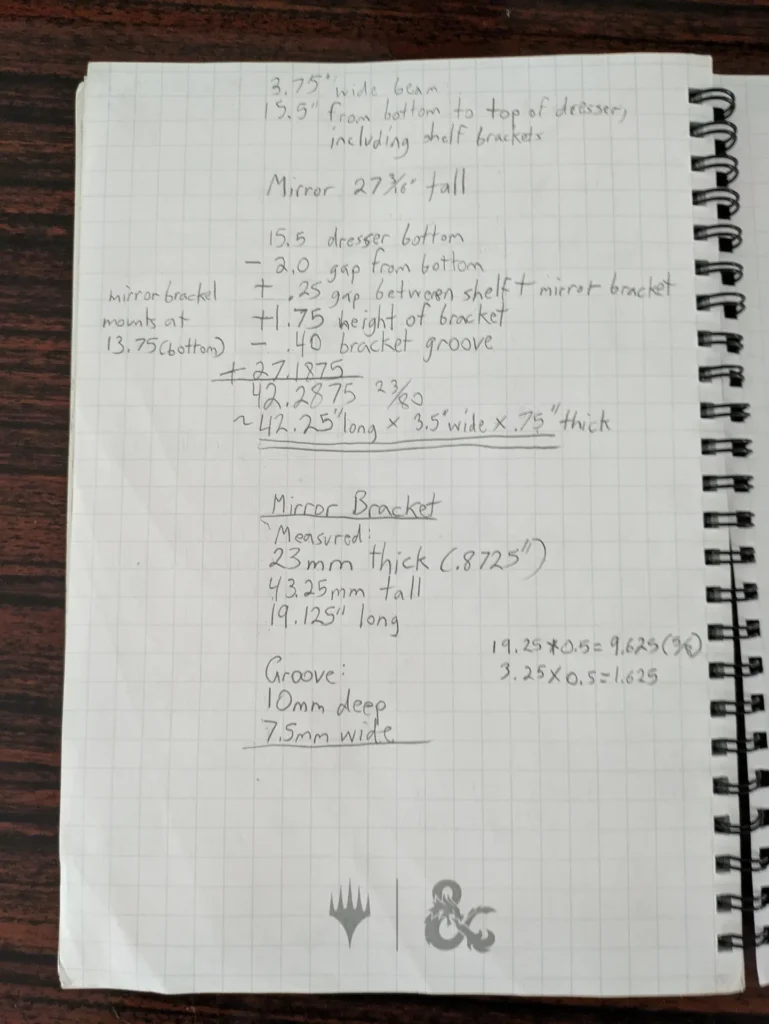 3.75" wide beam
15.5" from bottom to top of dresser,
including shelf brackets
Mirror 27 3/16" tall
15.5 dresser bottom
- 2.0 gap from bottom
+ .25 gap between shelf + mirror bracket
+1.75 height of bracket
- .40 bracket groove
+ 27.1875
mirror bracket
mounts at
13.75 (bottom)
42.2875 23/80
~ 42.25" long × 3.5" wide × .75" thick
Mirror Bracket
Measured:
23mm thick (.8725")
43.25mm tall
19.125" long
19.25 * 0.5 = 9.625
3.25 × 0.5 = 1.625
Groove:
10mm deep
7.5mm wide